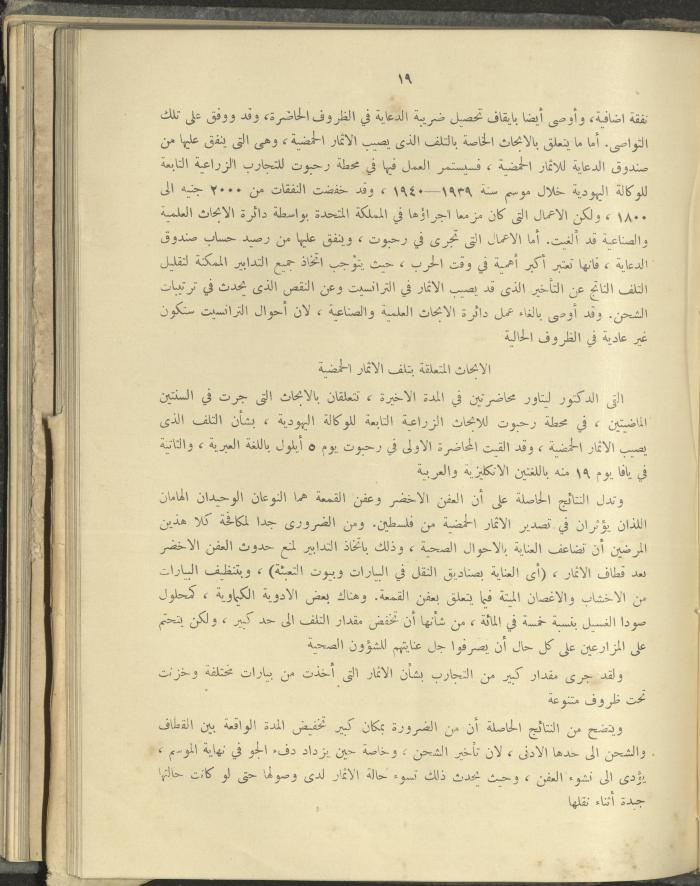 ١٩
نفقة اضافية، وأوصى أيضا بايقاف تحصيل ضريبة الدعاية في الظروف الحاضرة، وقد ووفق على تلك
التواصى. أما ما يتعلق بالابحاث الخاصة بالتلف الذى يصيب الاثمار الحمضية ، وهى التى ينفق عليها من
صندوق الدعاية للاثمار الحمضية ، فسيستمر العمل فيها في محطة رحبوت للتجارب الزراعية التابعة
للوكالة اليهودية خلال موسم سنة ١٩٣٩—١٩٤٠ ، وقد خفضت النفقات من ٢٠٠٠ جنيه الى
١٨٠٠ ، ولكن الاعمال التى كان مزمعا اجراؤها في المملكة المتحدة بواسطة دائرة الابحاث العلمية
والصناعية قد ألغيت. أما الاعمال التى تجرى في رحبوت ، وينفق عليها من رصيد حساب صندوق
الدعاية ، فانها تعتبر أكبر أهمية في وقت الحرب ، حيث يتوجب اتخاذ جميع التدابير الممكنة لتقليل
التلف الناتج عن التأخير الذى قد يصيب الاثمار في الترانسيت وعن النقص الذى يحدث في ترتيبات
الشحن. وقد أوصى بالغاء عمل دائرة الابحاث العلمية والصناعية ، لان أحوال الترانسيت ستكون
غير عادية في الظروف الحالية
الابحاث المتعلقة بتلف الاثمار الحمضية
القى الدكتور ليتاور محاضرتين في المدة الاخيرة ، تتعلقان بالابحاث التى جرت في السنتين
الماضيتين ، في محطة رحبوت للابحاث الزراعية التابعة للوكالة اليهودية ، بشأن التلف الذى
يصيب الاثمار الحمضية ، وقد القيت المحاضرة الاولى في رحبوت يوم ٥ أيلول باللغة العبرية ، والثانية
في يافا يوم ١٩ منه باللغتين الانكليزية والعربية
وتدل النتائج الحاصلة على أن العفن الاخضر وعفن القمعة هما النوعان الوحيدان الهامان
اللذان يؤثران في تصدير الاثمار الحمضية من فلسطين. ومن الضرورى جدا لمكافحة كلا هذين
المرضين أن تضاعف العناية بالاحوال الصحية ، وذلك باتخاذ التدابير لمنع حدوث العفن الاخضر
بعد قطاف الاثمار ، (أى العناية بصناديق النقل في البيارات وبيوت التعبئة) ، وبتنظيف البيارات
من الاخشاب والاغصان الميتة فيما يتعلق بعفن القمعة. وهناك بعض الادوية الكيماوية ، كمحلول
صودا الغسيل بنسبة خمسة في المائة ، من شأنها أن تخفض مقدار التلف الى حد كبير ، ولكن يتحتم
على المزارعين على كل حال أن يصرفوا جل عنايتهم للشؤون الصحية
ولقد جرى مقدار كبير من التجارب بشأن الاثمار التى أخذت من بيارات مختلفة وخزنت
تحت ظروف متنوعة
ويتضح من النتائج الحاصلة أن من الضرورة بمكان كبير تخفيض المدة الواقعة بين القطاف
والشحن الى حدها الادنى ، لان تأخير الشحن ، وخاصة حين يزداد دفء الجو في نهاية الموسم ،
يؤدى الى نشوء العفن ، وحيث يحدث ذلك تسوء حالة الاثمار لدى وصولها حتى لو كانت حالتها
جيدة أثناء نقلها